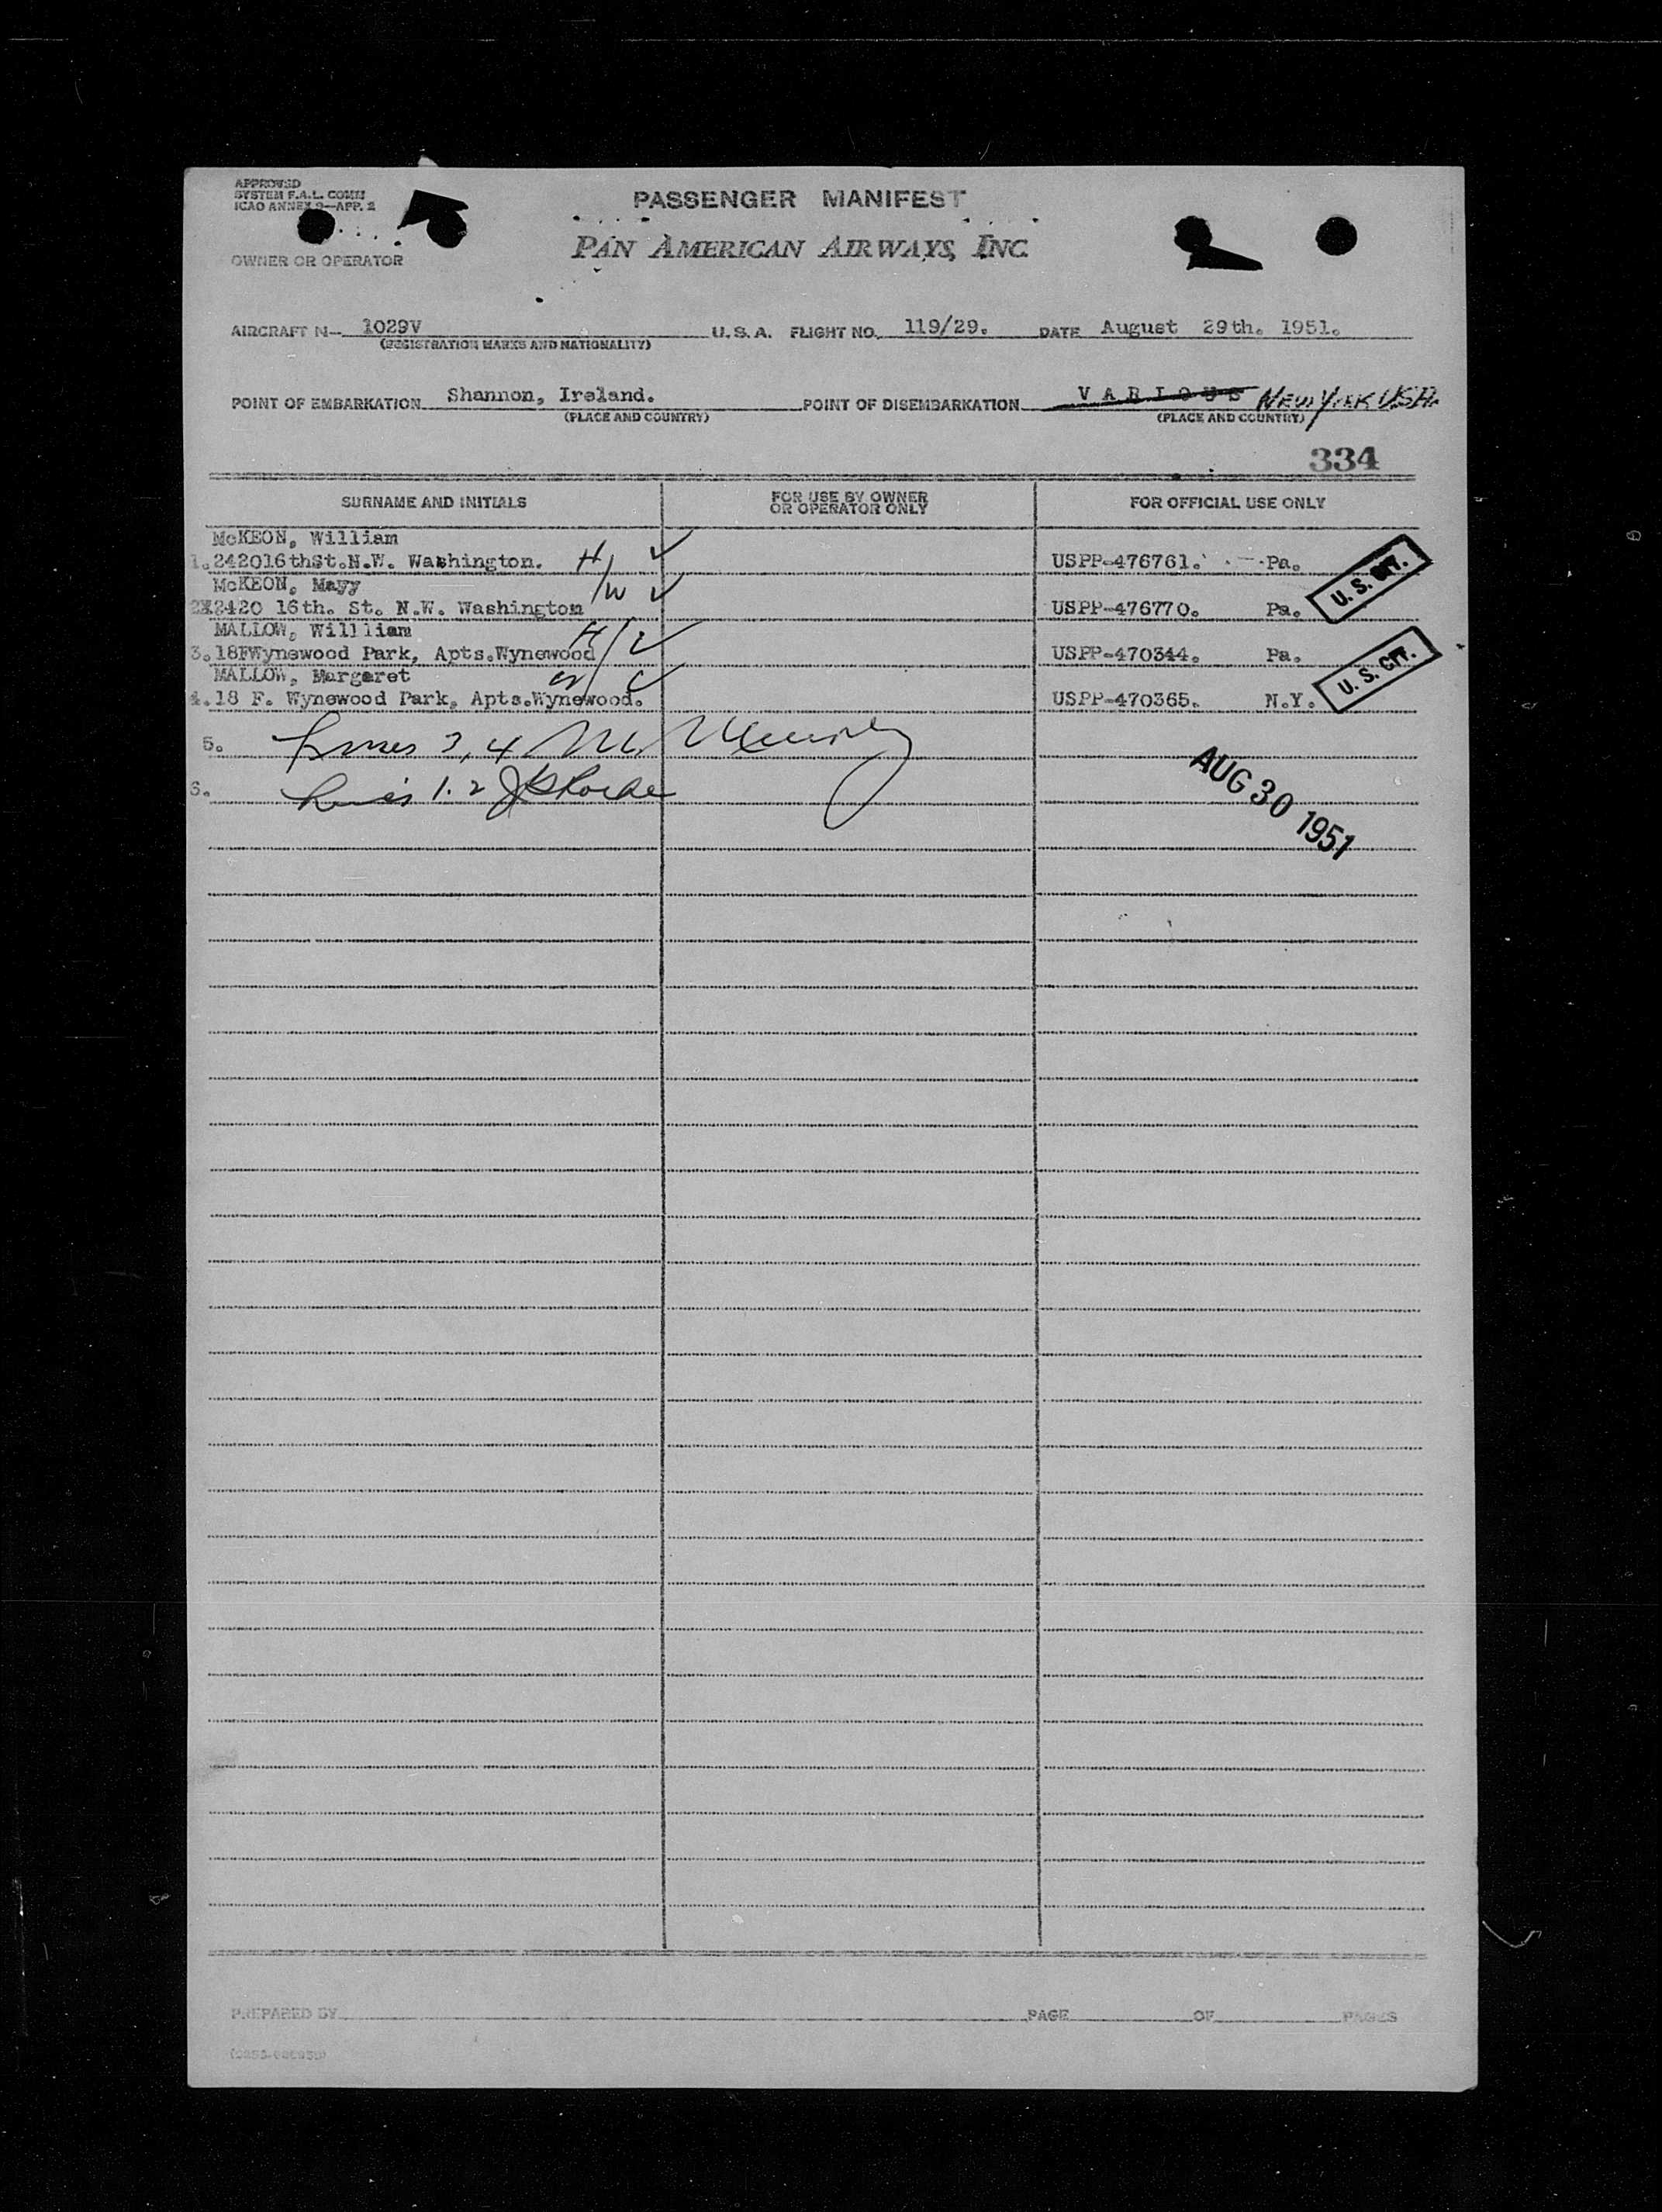 APPROVED
SYSTEM F.A.L. COMM
ICAO ANNEX 9—APP. 2
PASSENGER MANIFEST
OWNER OR OPERATOR
PAN AMERICAN AIRWAYS, INC.
AIRCRAFT N— 1029V U.S.A. FLIGHT NO. 119/29. DATE August 29th. 1951.
(REGISTRATION MARKS AND NATIONALITY)
POINT OF EMBARKATION Shannon, Ireland. POINT OF DISEMBARKATION VARIOUS NEW YORK USA.
(PLACE AND COUNTRY) (PLACE AND COUNTRY)
334
SURNAME AND INITIALS FOR USE BY OWNER OR OPERATOR ONLY FOR OFFICIAL USE ONLY
McKEON, William
1.242016thSt.N.W. Washington. H/ ✓ USPP-476761. Pa.
McKEON, Mayy
2X2420 16th. St. N.W. Washington /W ✓ USPP-476770. Pa. U.S. CIT.
MALLOW, Willliam
3.18FWynewood Park, Apts.Wynewood H/ ✓ USPP-470344. Pa.
MALLOW, Margaret
4.18 F. Wynewood Park, Apts.Wynewood. W/ ✓ USPP-470365. N.Y. U.S. CIT.
5. Lines 3,4 M.
6. Lines 1.2
AUG 30 1951
PREPARED BY PAGE OF PAGES